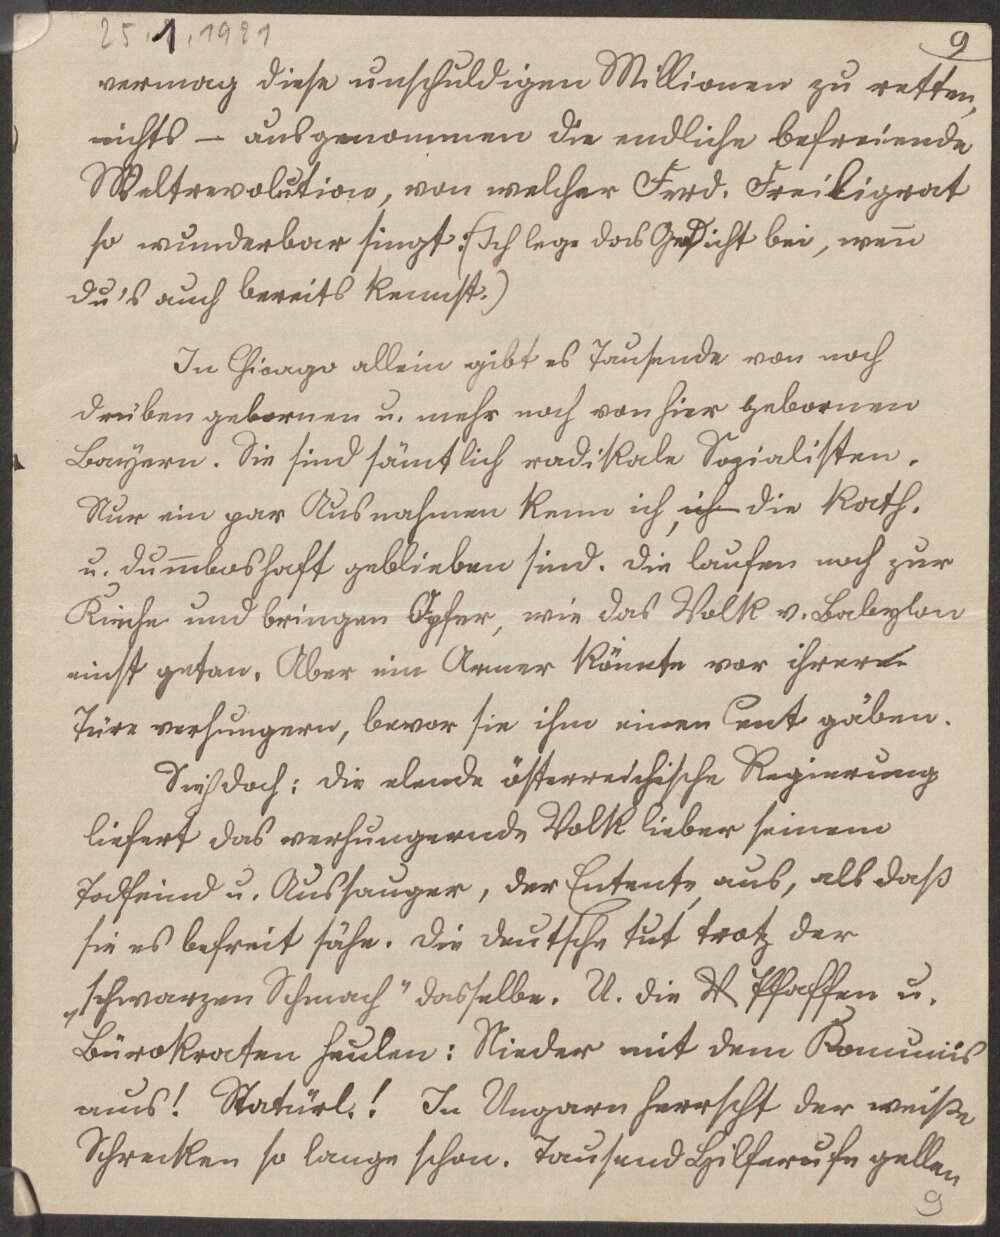 25.1.1921
9
vermag diese unschuldigen Millionen zu retten,
nichts – ausgenommen die endliche befreiende
Weltrevolution, von welcher Ferd. Freiligrat
so wunderbar singt: (Ich lege das Gedicht bei, wen̅
du's auch bereits kennst.)
In Chicago allein gibt es Tausende von noch
drüben gebornen u. mehr noch von hier gebornen
Bayern. Sie sind sämtlich radikale Sozialisten.
Nur ein par Ausnahmen kenn ich, die kath.
u. dum̅boshaft geblieben sind. Die laufen noch zur
Kirche und bringen Opfer, wie das Volk v. Babylon
einst getan. Aber ein Armer könnte vor ihrer
Türe verhungern, bevor sie ihm einen Cent gäben.
Sieh doch: die elende österreichische Regierung
liefert das verhungernde Volk lieber seinem
Todfeind u. Aussauger, der Entente, aus, als daß
sie es befreit sähe. Die deutsche tut trotz der
„schwarzen Schmach" dasselbe. U. die Pfaffen u.
Bürokraten heulen: Nieder mit dem Komunis
mus! Natürl.! In Ungarn herrscht der weiße
Schrecken so lange schon. Tausend Hilferufe gellen
9